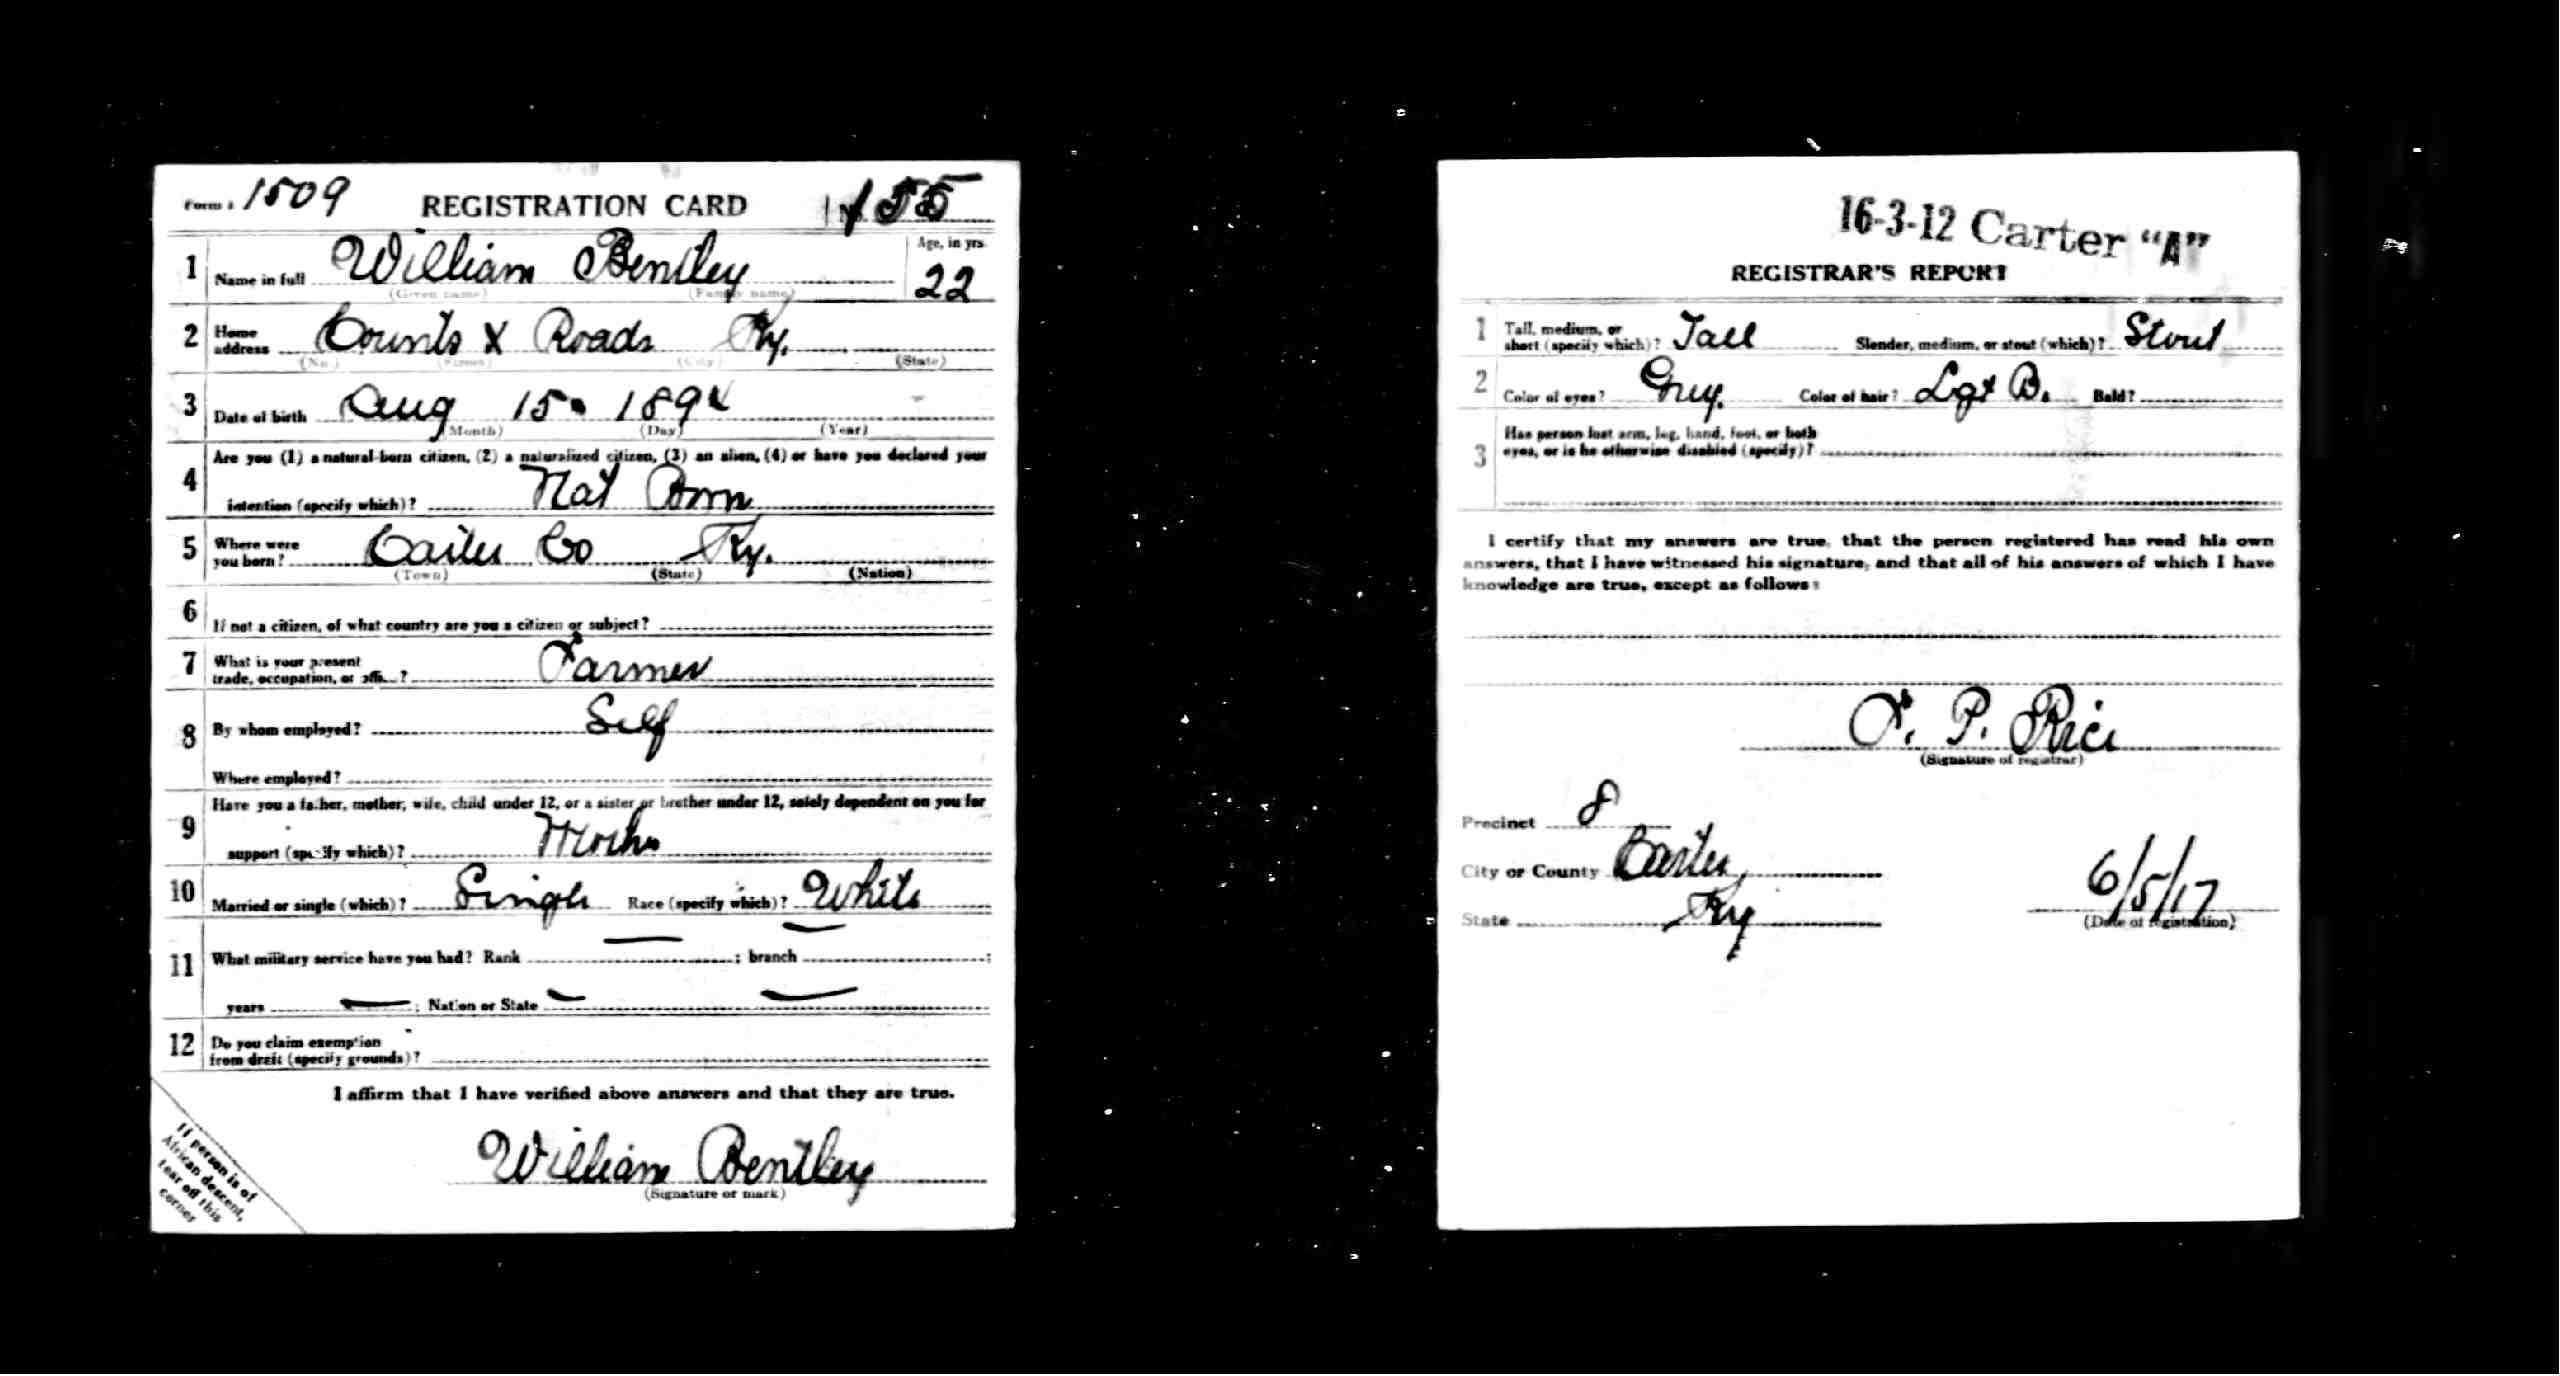 Form 1 1509 REGISTRATION CARD No. 155
1 Name in full William Bentley Age, in yrs. 22
(Given name) (Family name)
2 Home address Counts X Roads Ky.
(No.) (Street) (City) (State)
3 Date of birth Aug 15 1894
(Month) (Day) (Year)
4 Are you (1) a natural-born citizen, (2) a naturalized citizen, (3) an alien, (4) or have you declared your
intention (specify which)? Nat Born
5 Where were you born? Carter Co Ky.
(Town) (State) (Nation)
6 If not a citizen, of what country are you a citizen or subject?
7 What is your present
trade, occupation, or office? Farmer
8 By whom employed? Self
Where employed?
9 Have you a father, mother, wife, child under 12, or a sister or brother under 12, solely dependent on you for
support (specify which)? Mother
10 Married or single (which)? Single Race (specify which)? White
11 What military service have you had? Rank — ; branch — ;
years — ; Nation or State —
12 Do you claim exemption
from draft (specify grounds)?
I affirm that I have verified above answers and that they are true.
William Bentley
(Signature or mark)
If person is of
African descent,
tear off this
corner
16-3-12 Carter "A"
REGISTRAR'S REPORT
1 Tall, medium, or
short (specify which)? Tall Slender, medium, or stout (which)? Stout
2 Color of eyes? Grey. Color of hair? Lgt B. Bald?
3 Has person lost arm, leg, hand, foot, or both
eyes, or is he otherwise disabled (specify)?
I certify that my answers are true, that the person registered has read his own
answers, that I have witnessed his signature, and that all of his answers of which I have
knowledge are true, except as follows:
F. P. Rice
(Signature of registrar)
Precinct 8
City or County Carter
State Ky
6/5/17
(Date of registration)